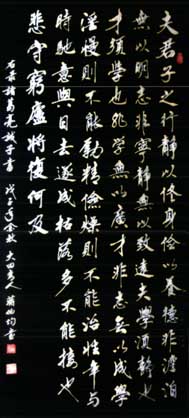 夫君子之行靜以修身儉以養德非澹泊
無以明志非寧靜無以致遠夫學須靜也
才須學也非學無以廣才非志無以成學
淫慢則不能勵精險燥則不能治性年與
時馳意與日去遂成枯落多不能接也
悲守窮廬將復何及
右录諸葛亮誡子書 戊子年金秋